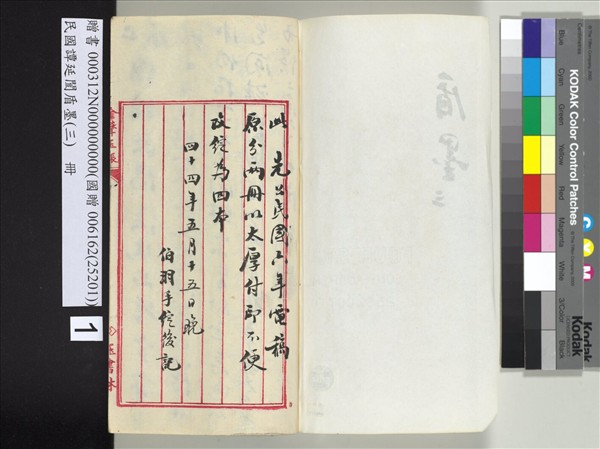 此先公民國六年電稿
原分兩冊以太厚付印不便
改綻為四本
四十四年五月十五日晚
伯羽手綻後記
贈書 000312N000000000(國贈 006162(25201))
民國譚延闓盾墨(三) 冊
1
KODAK Color Control Patches
Blue
Cyan
Green
Yellow
Red
Magenta
White
3/Color
Black
Kodak
C
Y
M